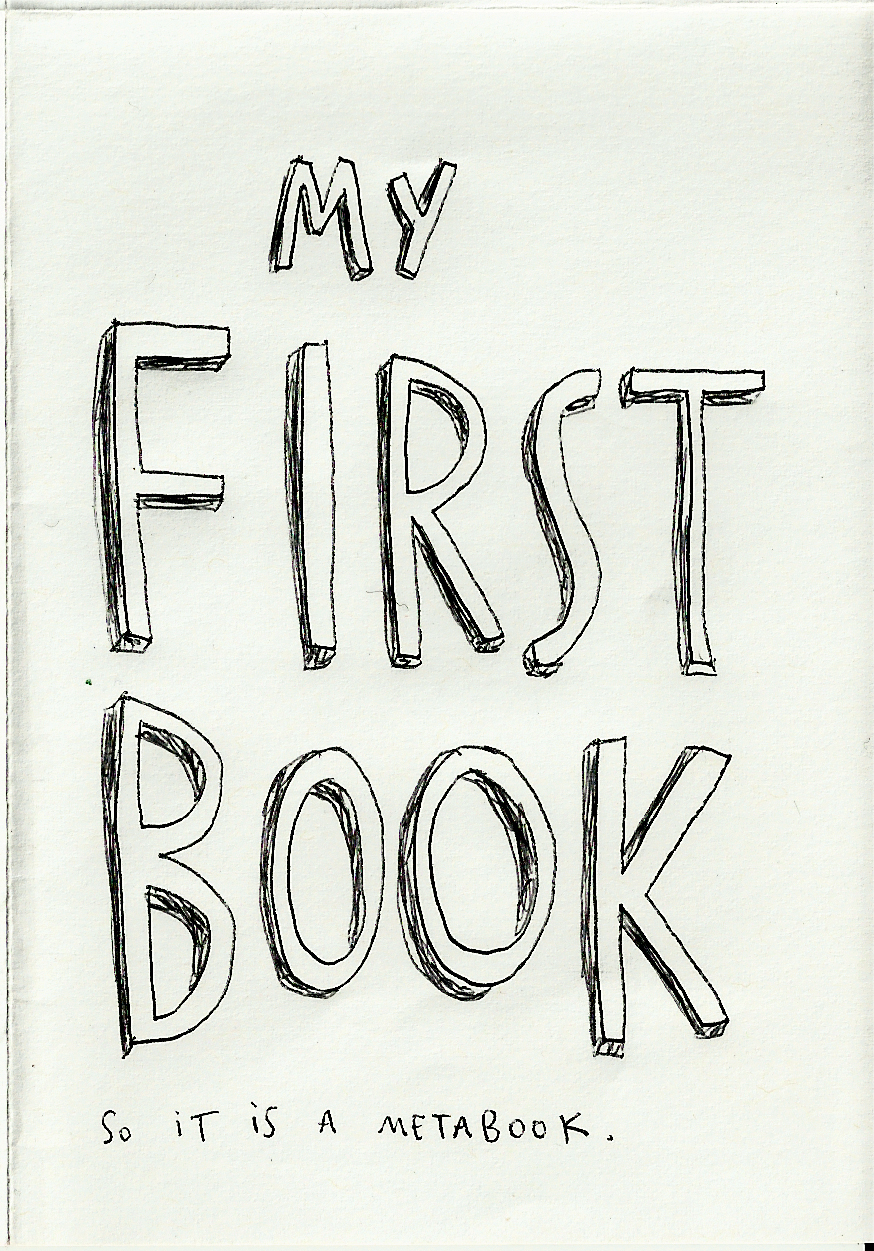 MY
FIRST
BOOK
So iT iS A METABOOK.